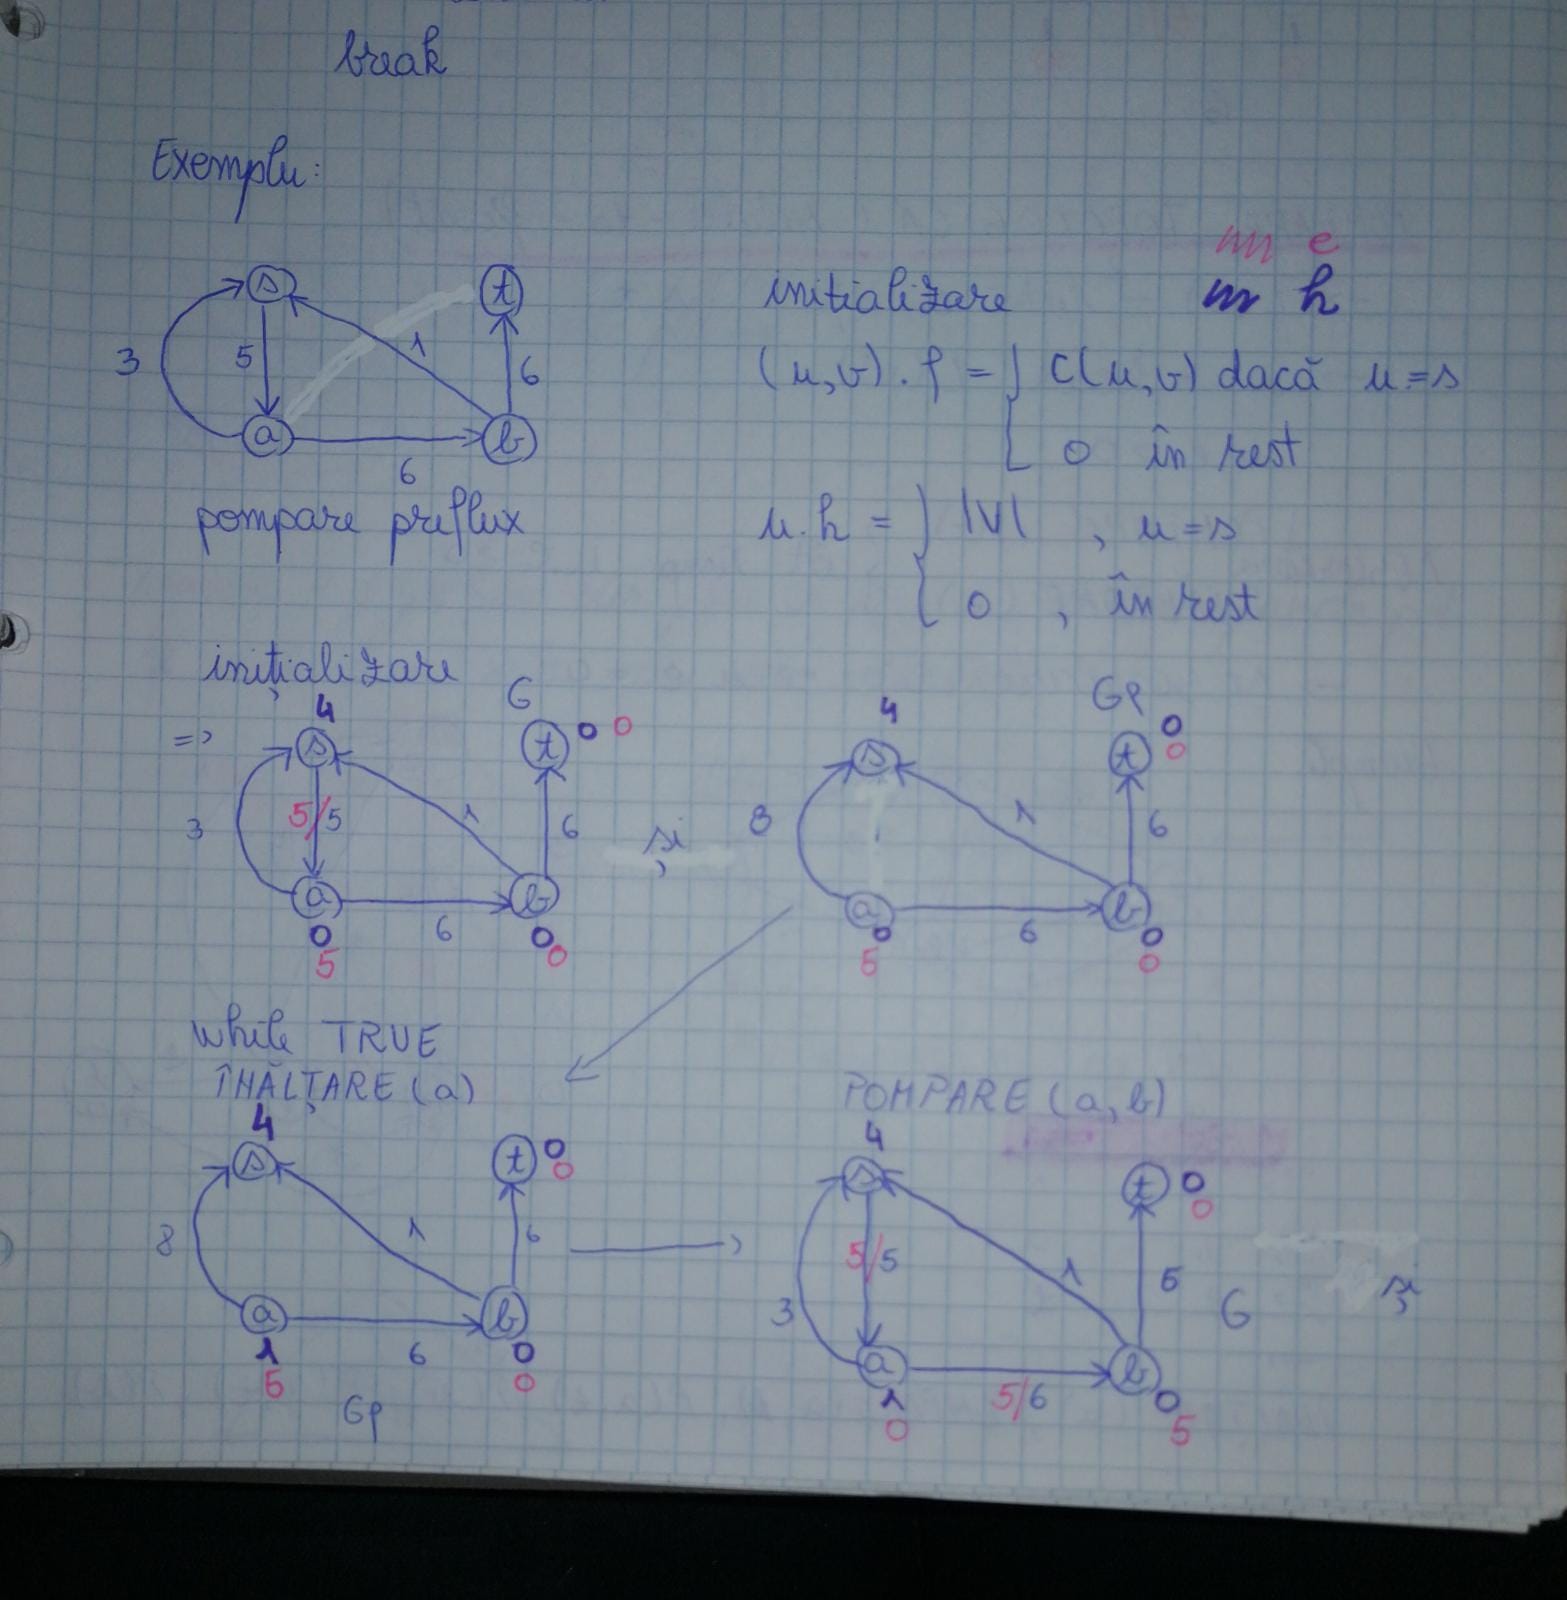 break
Exemplu:
s t
3 5 1 6
a b
6
pompare preflux
e
initializare h
(u,v).f = { C(u,v) dacă u=s
0 în rest
u.h = { |V| , u=s
0 , în rest
inițializare
G
=> 4
s t 0 0
3 5/5 1 6
a 6 b
0 0
5 0
și
Gf
4
s t 0
0
8 1 6
a 6 b
0 0
5 0
while TRUE
ÎNĂLȚARE (a)
4
s t 0
0
8 1 6
a b
1 6 0
5 0
Gf
POMPARE (a,b)
4
s t 0
0
5/5 1 6
3 G și
a b
1 5/6 0
0 5